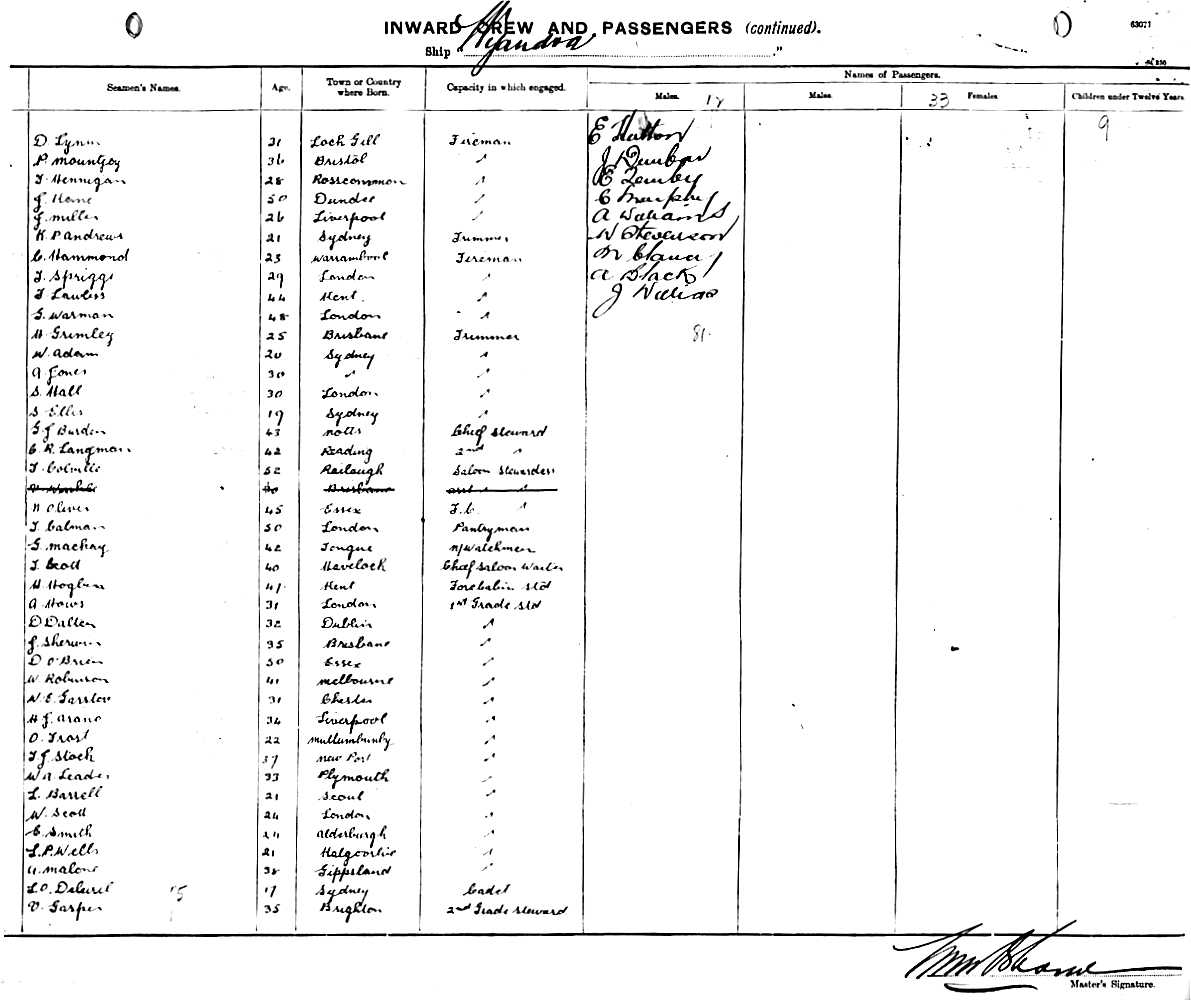 INWARD CREW AND PASSENGERS (continued).
63071
Ship " Wyandra "
Seamen's Names. Age. Town or Country where Born. Capacity in which engaged. Names of Passengers.
Males. 18 Males. 33 Females. Children under Twelve Years.
9
D Lynn 21 Loch Gill Fireman E Hutton
P. Mountjoy 36 Bristol " J Dunbar
T Hennigan 28 Rosscommon " E
J. Hone 50 Dundee " C Murphy
J. Miller 26 Liverpool " A Williams
K P Andrews 21 Sydney Trimmer W Stevenson
C. Hammond 23 Warrambool Fireman M Clancy
T. Spriggs 29 London " A Black
T Lawless 44 Kent. " J
G. Warman 48 London "
H Grimley 25 Brisbane Trimmer 81
W. Adam 20 Sydney "
A Jones 30 " "
S. Hall 30 London "
S Ellis 19 Sydney "
G J Burden 43 Notts Chief Steward
C. R. Langman 42 Reading 2nd "
T Colville 52 Saloon Stewardess
30 Brisbane asst " "
N Oliver 45 Essex F.C. "
T. Calman 50 London Pantryman
G. Mackay 42 Tongue N/Watchman
T. Scott 40 Havelock Chief Saloon Waiter
H 47 Kent Forecabin Std
A Hows 31 London 1st Grade Std
D Dalten 32 Dublin "
J. Sherwin 35 Brisbane "
D O'Brien 50 Essex "
W. Robinson 41 Melbourne "
W. E. Garston 31 Chester "
H J. 34 Liverpool "
O. Frost 22 Mullumbimby "
T J Stock 37 New Port "
W A Leader 33 Plymouth "
L. Barrell 21 Seoul "
W. Scott 24 London "
E. Smith 24 Alderburgh "
L. P. Wells 21 Kalgoorlie "
A. Malone 38 Gippsland "
L. O. 15 17 Sydney Cadet
V. Gasper 35 Brighton 2nd Grade Steward
Master's Signature.